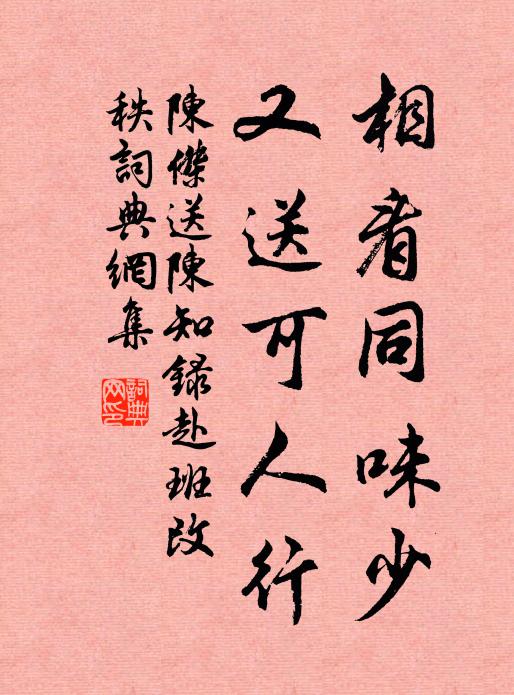 相看同味少
又送可人行
陳傑送陳知録赴班改
秩詞典網集
詞典網印